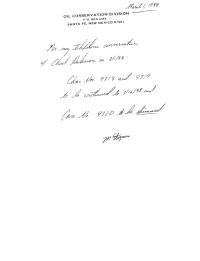 March 1, 1988
OIL CONSERVATION DIVISION
P.O. BOX 2088
SANTA FE, NEW MEXICO 87501
Per my telephone conversation
of Chad on 3/1/88:
Case No. 9318 and 9319
to be continued to 3/16/88 and
Case No 9320 to be dismissed